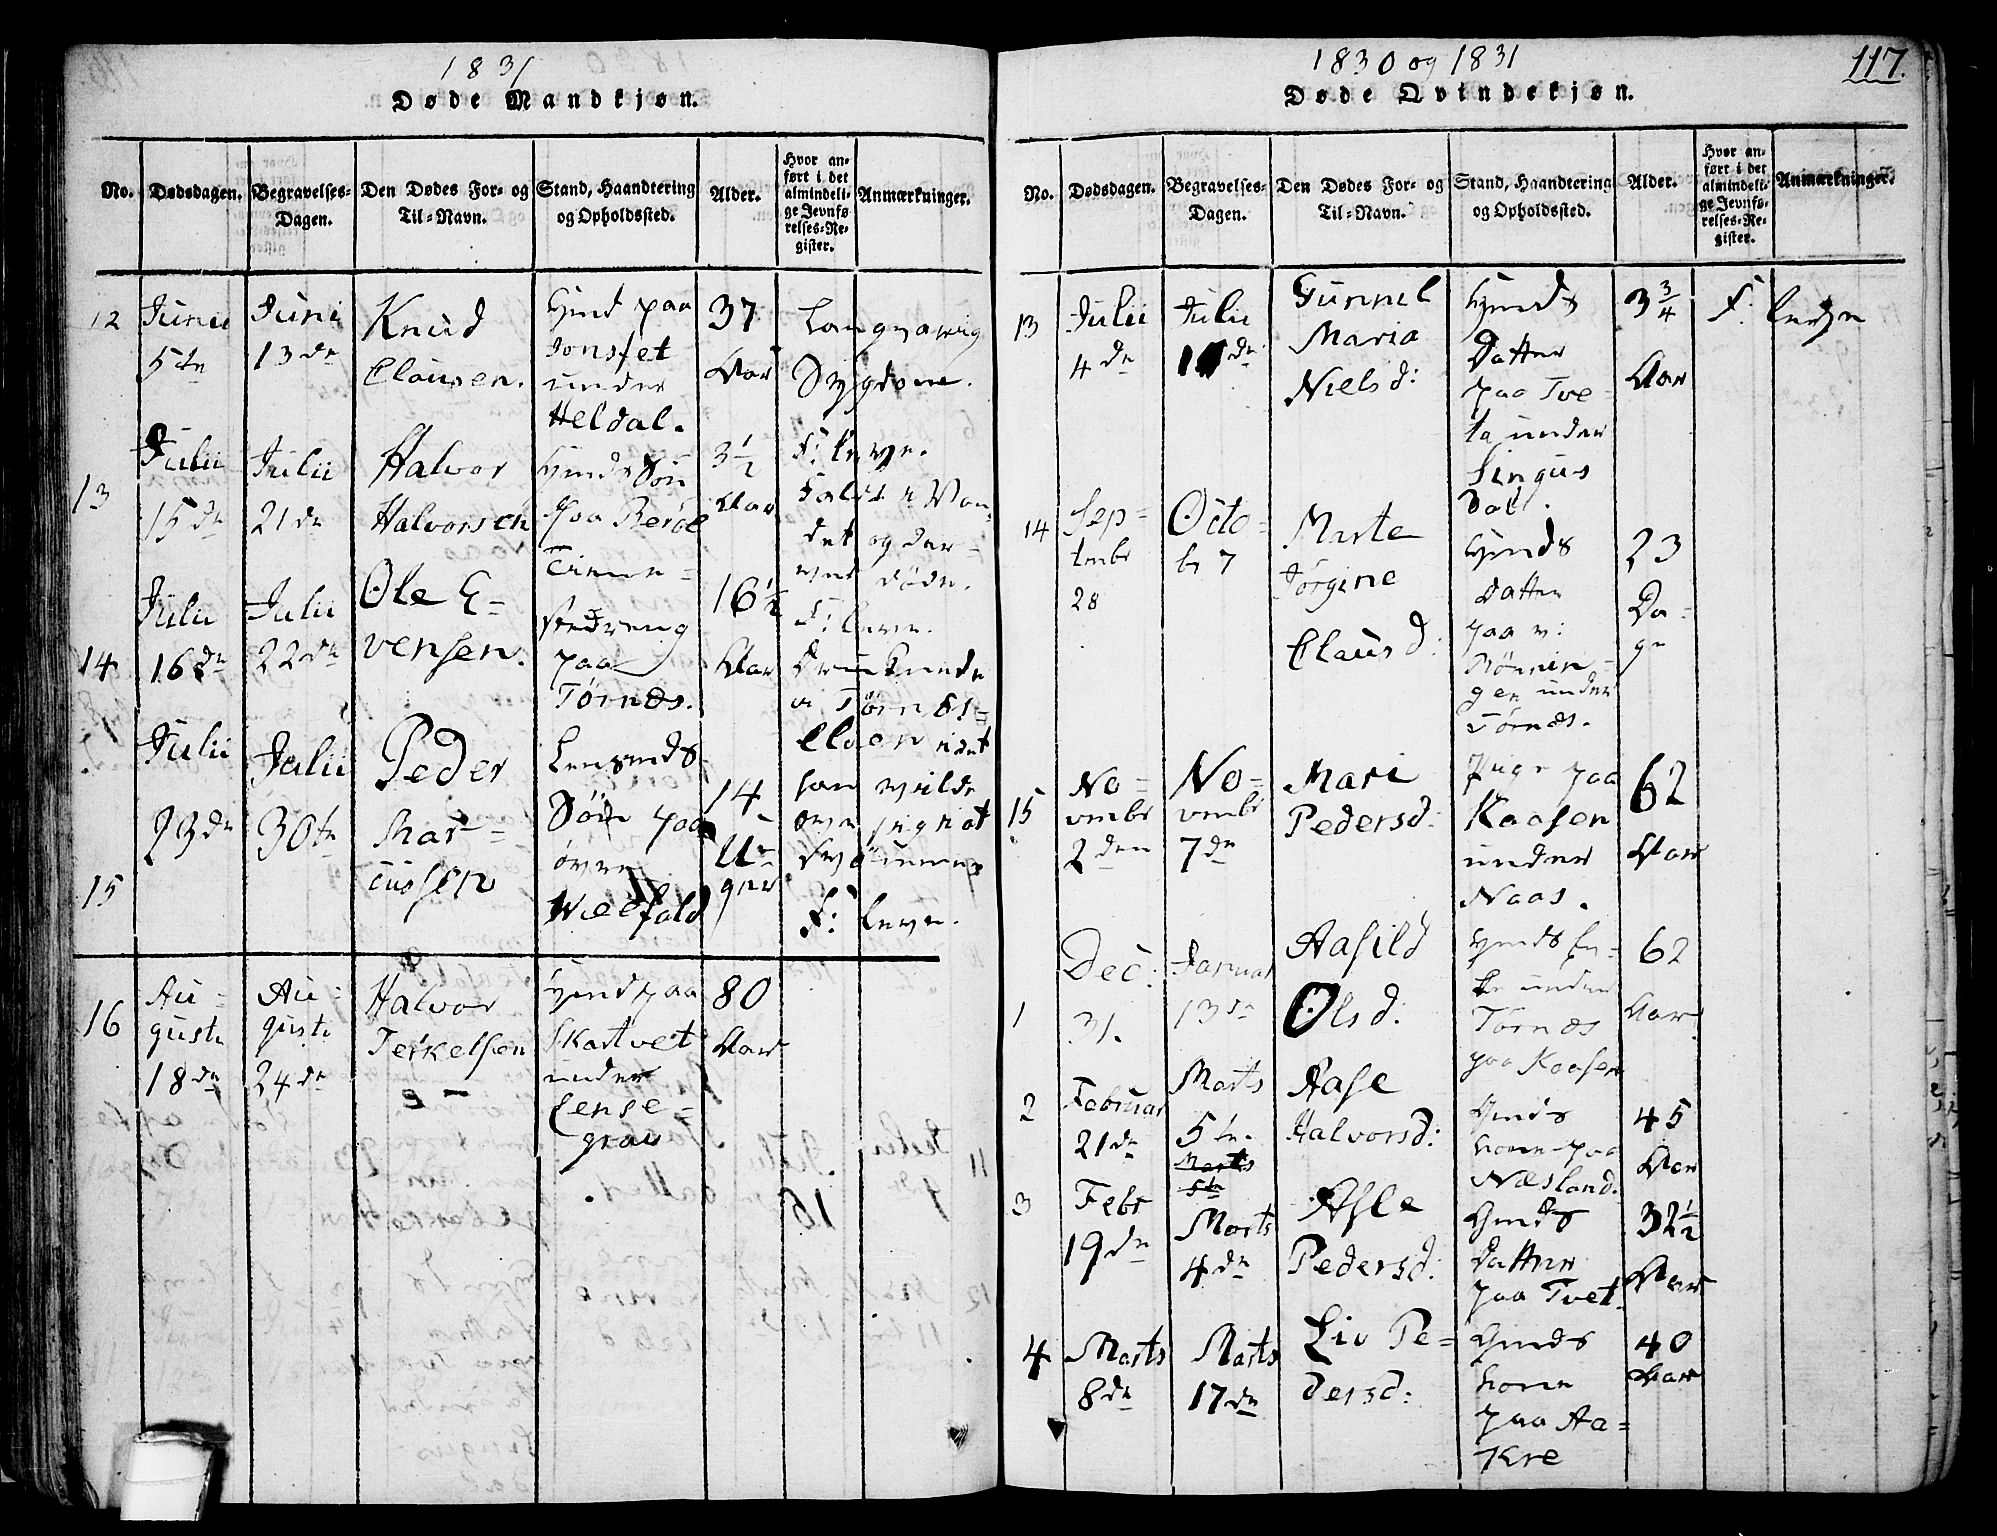 1831
Døde Mandkjøn.
No.
Dødsdagen.
Begravelses-
Dagen.
Den Dødes For- og
Til-Navn.
Stand, Haandtering
og Opholdssted.
Alder.
Hvor an-
ført i det
almindeli-
ge Jevnfø-
relses-Re-
gister.
Anmærkninger.
12
Junii
5te
Juni
13de
Knud
Clausen.
Hmd paa
Jonsset
under
Heldal.
37
Aar
Langvarig
Sygdom.
13
Julii
15de
Julii
21de
Halvor
Halvorsen
Hmds Søn
paa Berøe
3½
Aar
F: leve.
Faldt i Van-
det og der-
ved døde.
14
Julii
16de
Julii
22de
Ole E-
vensen.
Tiene-
stedreng
paa
Tørnes.
16½
Aar
F: leve.
Druknede
i Tørnes-
Elven idet
han vilde
over
svømme
15
Julii
23de
Julii
30te
Peder
Mar-
cussen
Lensmds
Søn paa
øvre
Weefald
14
U-
ger
F: leve.
16
Au-
guste
18de
Au-
guste
24de
Halvor
Terkelsen
Hmd paa
Skartvet
under
Sense-
grav
80
Aar
1830 og 1831
117.
Døde Qvindekjøn.
No.
Dødsdagen.
Begravelses-
Dagen.
Den Dødes For- og
Til-Navn.
Stand, Haandtering
og Opholdssted.
Alder.
Hvor an-
ført i det
almindeli-
ge Jevnfø-
relses-Re-
gister.
Anmærkninger.
13
Julii
4de
Julii
de
Gunnil
Maria
Nielsd:
Hmds
Datter
paa Tve-
ta under
Lingus
Dal.
3¾
Aar
F: leve
14
Sep-
tembr
28
Octo-
br 7
Marte
Jørgine
Clausd:
Hmds
Datter
paa v:
Rønnin-
gen under
Tørnes.
23
Da-
ge
15
No-
vembr
2den
No-
vembr
7de
Mari
Pedersd:
Pige paa
Kaasen
under
Naas.
62
Aar
1
Dec:
31.
Januar
13de
Aasild
Olsd:
Hmds En-
ke under
Tørnes
paa Kaasen
62
Aar
2
Februar
21de
Marts
5te.
Aase
Halvorsd:
Hmds
kone paa
Næsland.
45
Aar
Marts
5te
3
Febr
19de
Marts
4de
Asle
Pedersd:
Hmds
Datter
paa Tvet.
32½
Aar
4
Marts
8de
Marts
17de
Liv Pe-
dersd:
Hmds
kone
paa Aa-
kre
40
Aar